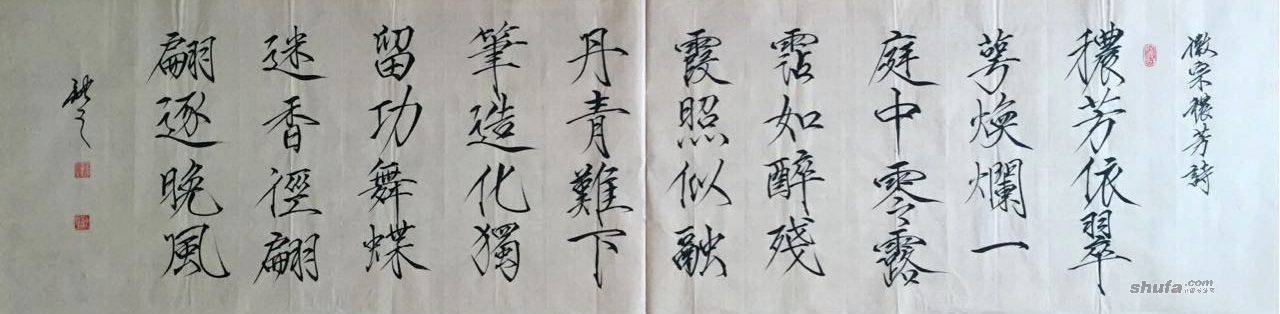 徽宗穠芳詩
穠芳依翠
萼煥爛一
庭中零露
霑如醉殘
霞照似融
丹青難下
筆造化獨
留功舞蝶
迷香徑翩
翩逐晚風
shufa.com